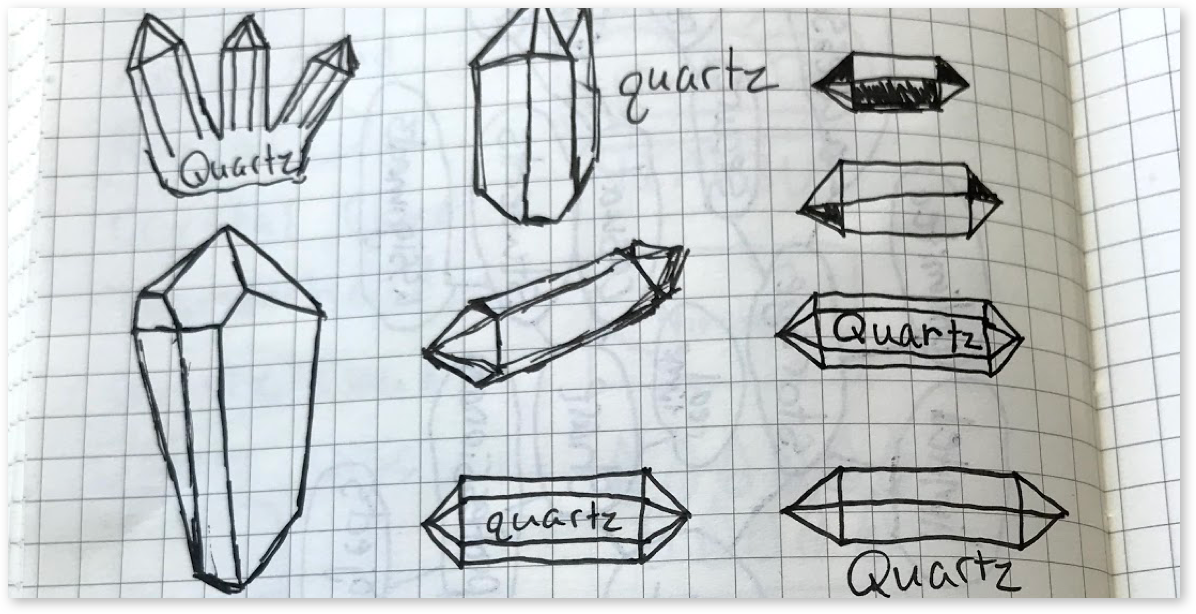 Quartz
quartz
Quartz
quartz
Quartz